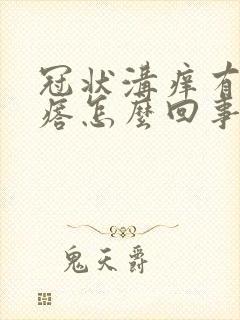 冠状溝痒有
痞怎麼回事
鬼天爵